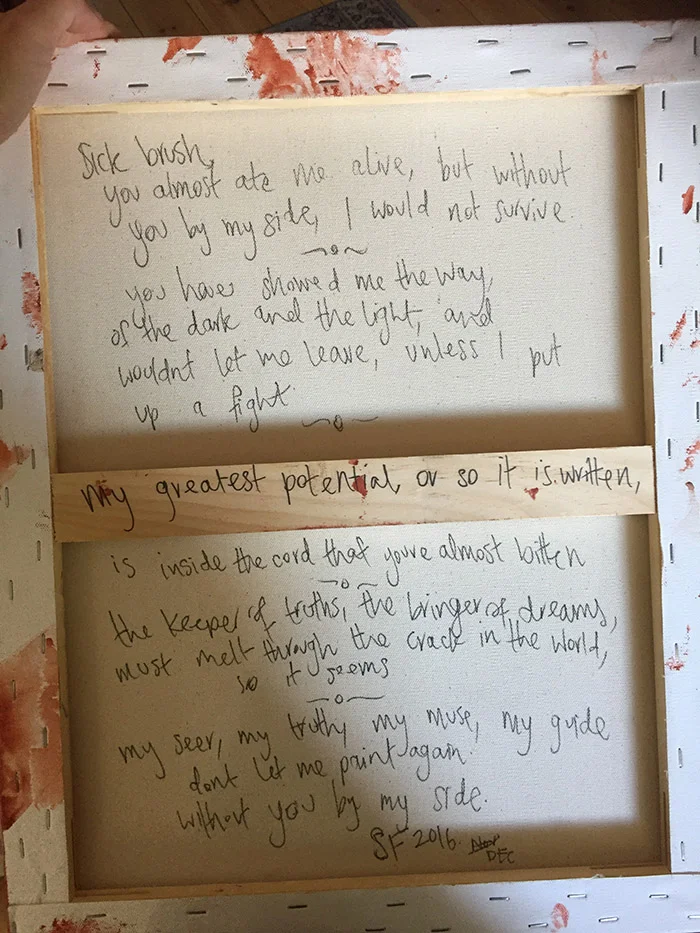 Sick brush,
you almost ate me alive, but without
you by my side, I would not survive.
you have showed me the way,
of the dark and the light, and
wouldnt let me leave, unless I put
up a fight.
my greatest potential, or so it is written,
is inside the cord that youve almost bitten
the keeper of truths, the bringer of dreams,
must melt through the crack in the world,
so it seems
my seer, my truth, my muse, my guide
dont let me paint again
without you by my side.
SF 2016.
DEC